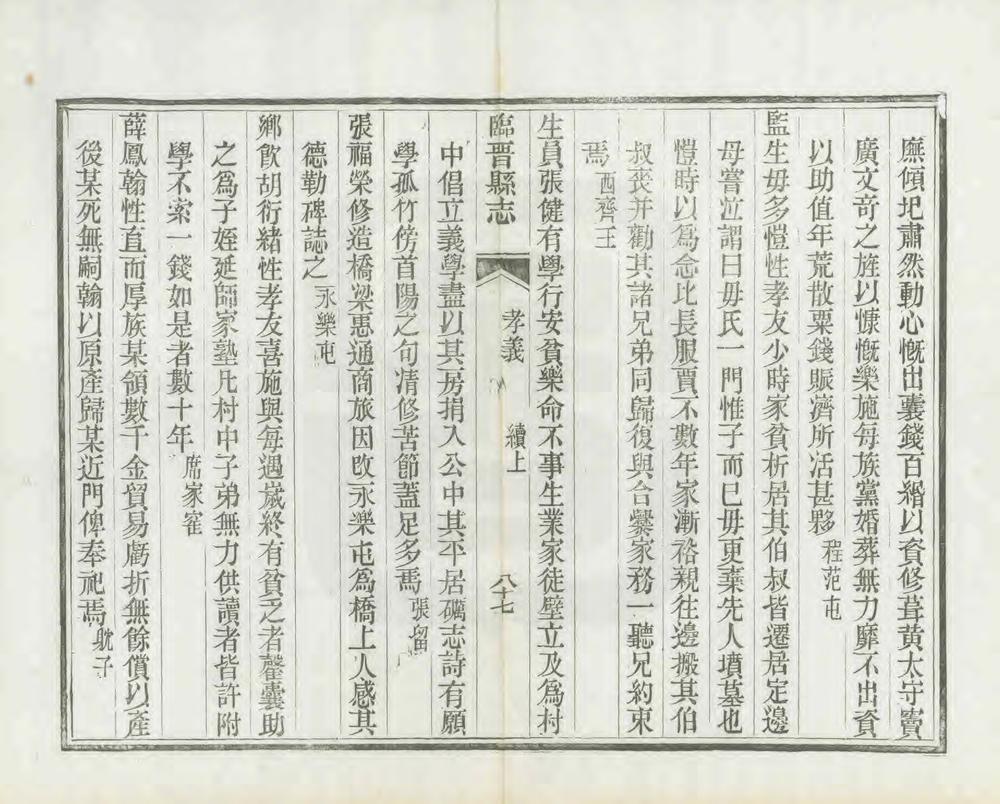 廡傾圯肅然動心慨出囊錢百緡以資修葺黃太守竇
廣文奇之旌以慷慨樂施每族黨婚葬無力靡不出資
以助值年荒散粟錢賑濟所活甚夥程范屯
監生毋多愷性孝友少時家貧析居其伯叔皆遷居定邊
母嘗泣謂曰毋氏一門惟子而已毋更棄先人墳墓也
愷時以為念比長服賈不數年家漸裕親往邊搬其伯
叔喪并勸其諸兄弟同歸復與合爨家務一聽兄約束
焉西齊王
生員張健有學行安貧樂命不事生業家徒壁立及為村
臨晉縣志 孝義 續上 八十七
中倡立義學盡以其房捐入公中其平居礪志詩有願
學孤竹傍首陽之句清修苦節蓋足多焉張留
張福榮修造橋梁惠通商旅因改永樂屯為橋上人感其
德勒碑誌之永樂屯
鄉飲胡衍緒性孝友喜施與每遇歲終有貧乏者罄囊助
之為子姪延師家塾凡村中子弟無力供讀者皆許附
學不索一錢如是者數十年席家窑
薛鳳翰性直而厚族某領數千金貿易虧折無餘償以產
後某死無嗣翰以原產歸某近門俾奉祀焉耽子